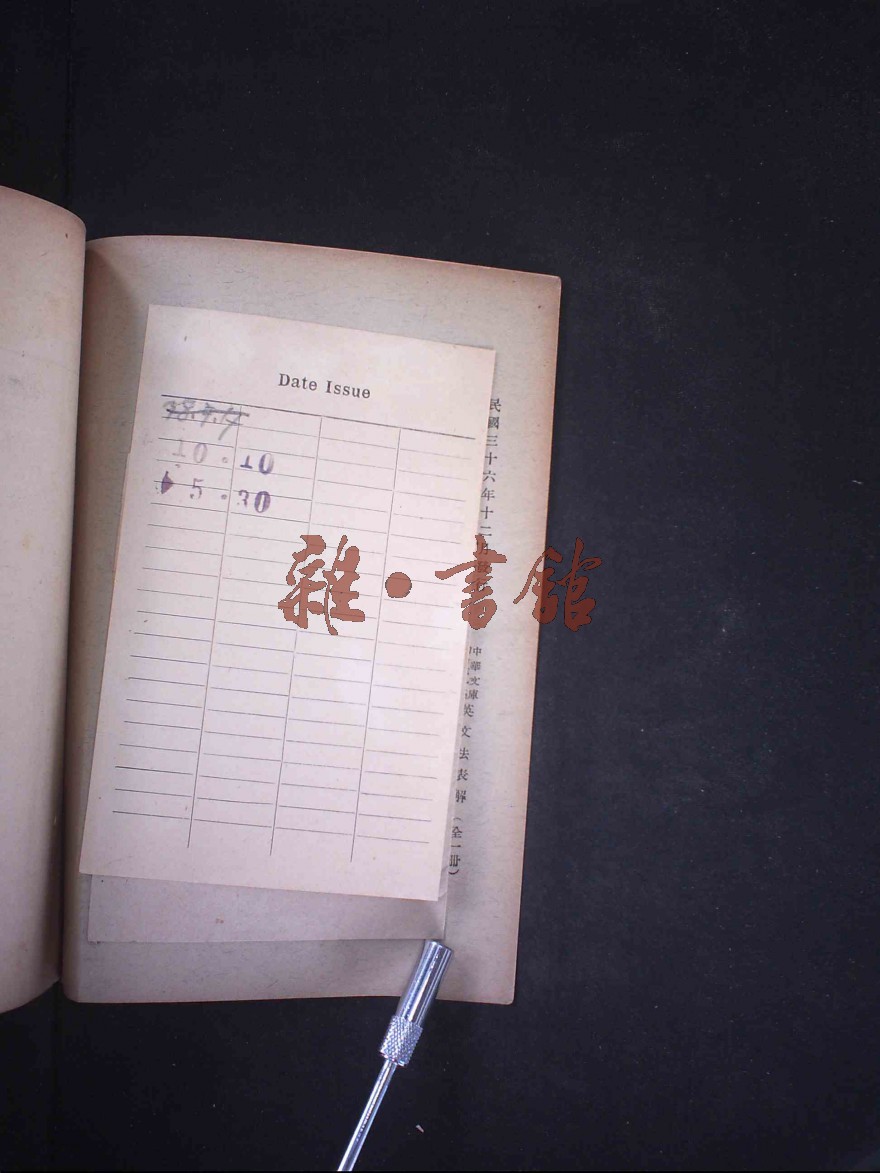 Date Issue
10.10
5.30
民國三十六年十二月發行
中華文庫
英文法表解(全一冊)
雜·書館